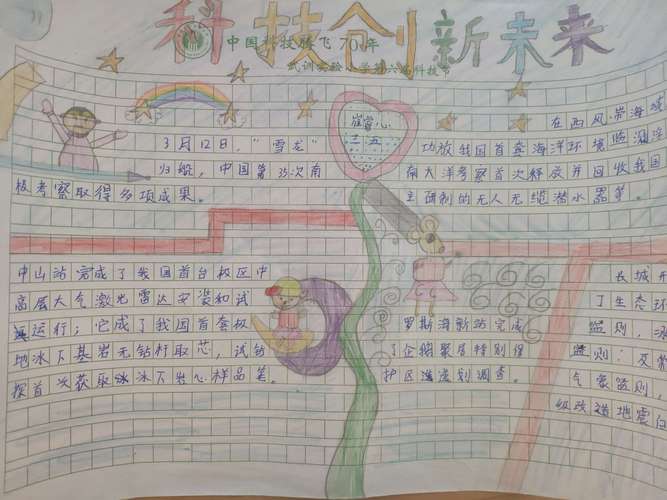 科技创新未来
中国科技腾飞70年
武训实验小学第六届科技节
崔馨心
二.五
3月12日，“雪龙”
归航，中国第35次南
极考察取得多项成果。
在西风带海域
功放我国首套海洋环境监测浮
南大洋考察首次释放并回收我国
主研制的无人无缆潜水器等。
中山站完成了我国首台极区中
高层大气激光雷达安装和试
运行；它成了我国首套极
地冰下基岩无钻杆取芯，试钻
探首次获取冰下岩心样品等。
罗斯海新站完成
了企鹅聚居特别保
护区选划调查。
长城
了生态环
监测，
监测；及常
气象监测，
级改造地震台